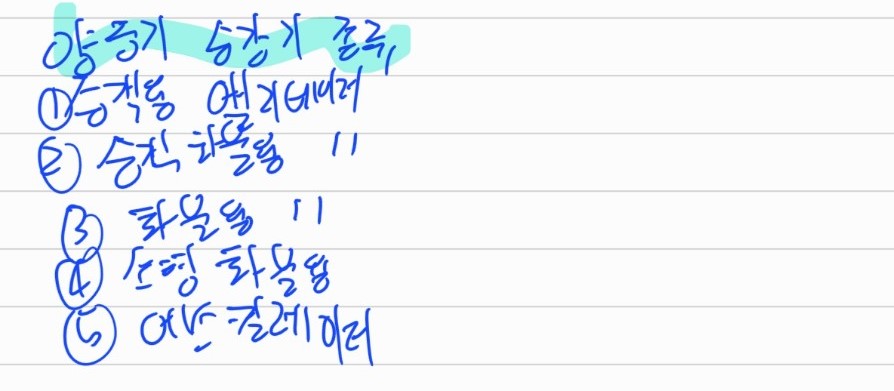 양중기 승강기 종류,
①승객용 엘리베이터
② 승객 화물용 〃
③ 화물용 〃
④ 소형 화물용
⑤ 에스컬레이터